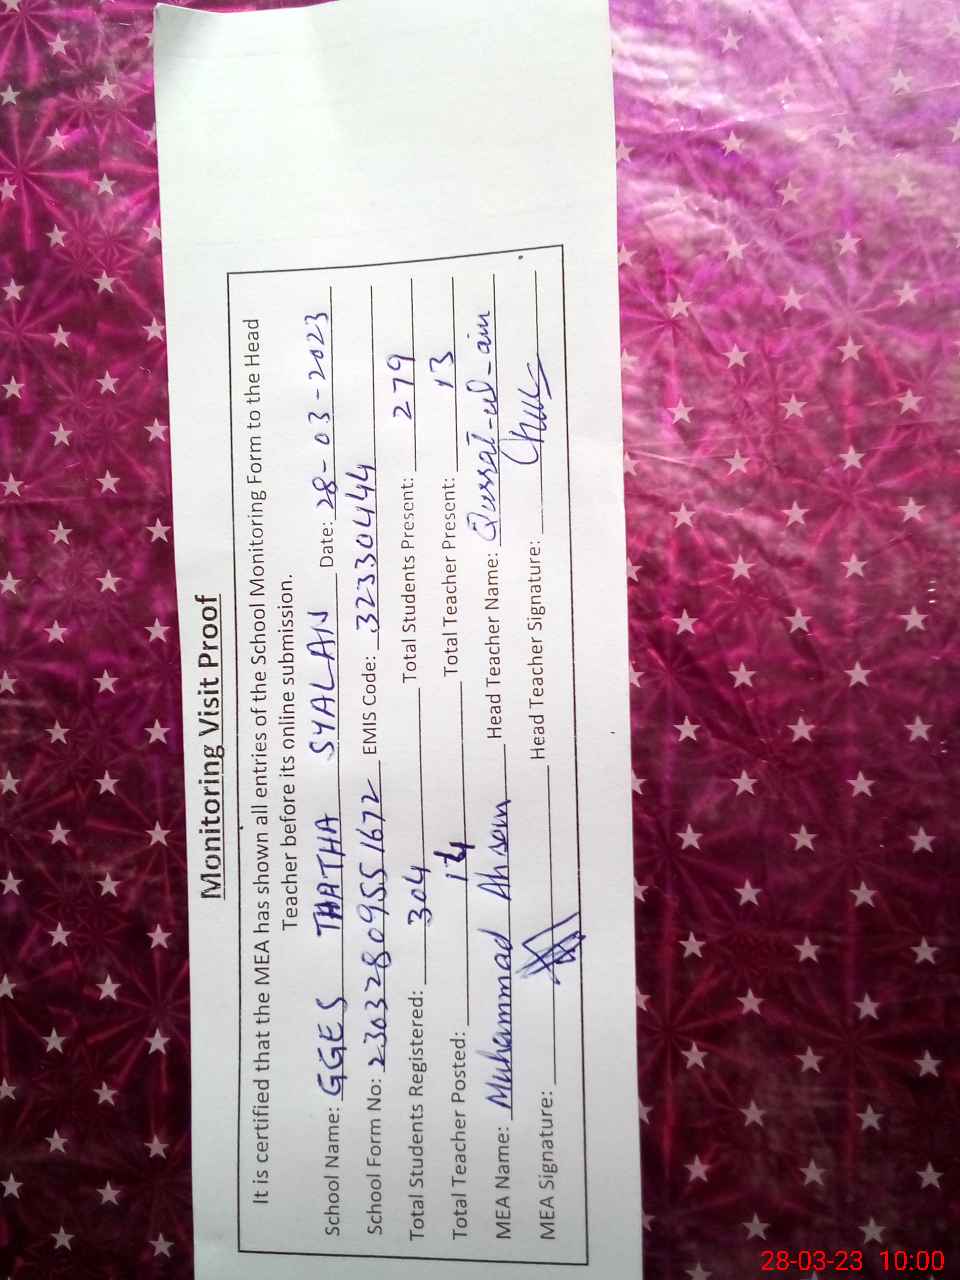 Monitoring Visit Proof
It is certified that the MEA has shown all entries of the School Monitoring Form to the Head
Teacher before its online submission.
School Name: GGES THATHA SYALAN Date: 28-03-2023
School Form No: 230328095551672 EMIS Code: 32330444
Total Students Registered: 304 Total Students Present: 279
Total Teacher Posted: 14 Total Teacher Present: 13
MEA Name: Muhammad Ahsan Head Teacher Name: Qurrat-ul-ain
MEA Signature: Head Teacher Signature:
28-03-23 10:00